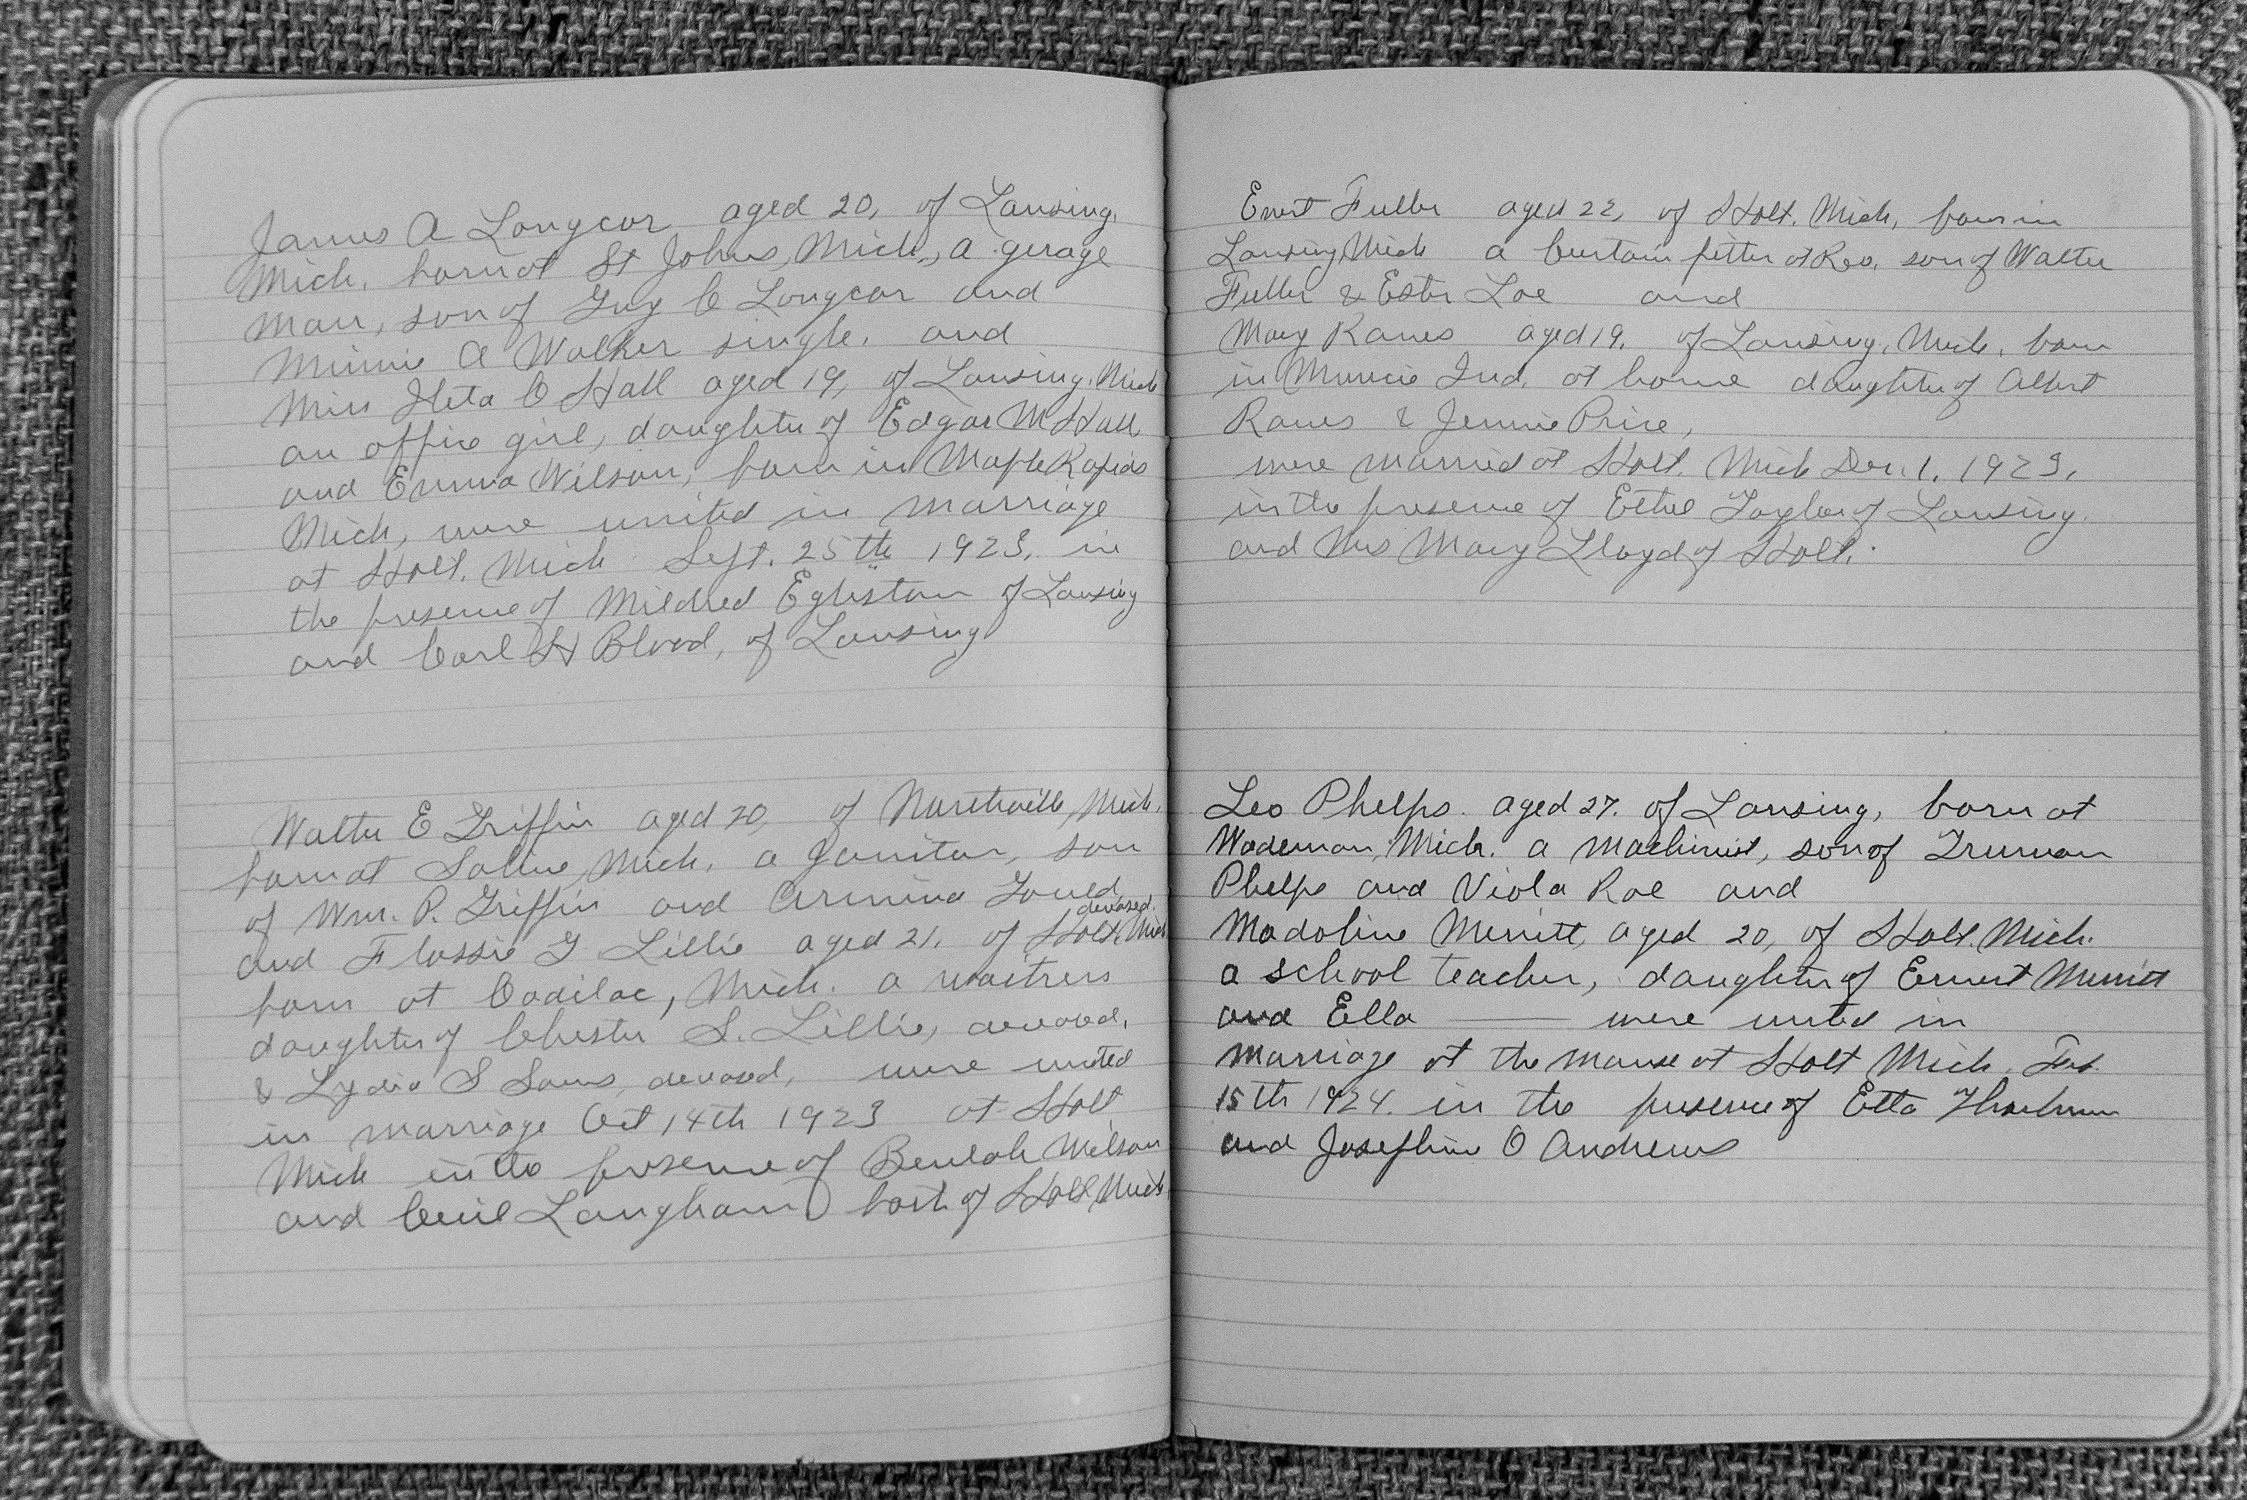 James A Longcor aged 20, of Lansing,
Mich, born at St Johns, Mich., a gerage
man, son of Guy C Longcor and
Minnie A Walker single. and
Miss Ileta C Hall aged 19, of Lansing. Mich
an office girl, daughter of Edgar M Hall,
and Emma Wilson, born in Maple Rapids
Mich, were united in marriage
at Holt. Mich Sept. 25th 1923, in
the presence of Mildred Eglistom of Lansing
and Carl H Blood, of Lansing
Walter E Griffin aged 20, of Mich.
born at Saline, Mich. a Janitor, son
of Wm. P. Griffin and Armina Gould
deceased.
and Flossie G Lillie aged 21. of Holt. Mich
born at Cadilac, Mich. a waitress
daughter of Chester S. Lillie, deceased,
& Lydia S deceased, were united
in marriage Oct 14th 1923 at Holt
Mich in the presence of Beulah Wilson
and Cecil Langham both of Holt, Mich
Fuller aged 22, of Holt. Mich, born in
Lansing, Mich a Curtain fitter at Reo. son of Walter
Fuller & Ester Loe and
Mary Ranes aged 19. of Lansing, Mich. born
in Muncie Ind. at home daughter of Albert
Ranes & Jennie Price,
were married at Holt. Mich Dec. 1. 1923.
in the presence of Ethel Taylor of Lansing.
and Mrs Mary Lloyd of Holt.
Leo Phelps. aged 27. of Lansing, born at
Wademan, Mich. a machinist, son of Truman
Phelps and Viola Roe and
Madoline Merritt, aged 20, of Holt. Mich.
a school teacher, daughter of Ernest Merritt
and Ella —— were united in
marriage at the manse at Holt Mich. Feb.
15th 1924. in the presence of Etta
and Josephine O Andrews